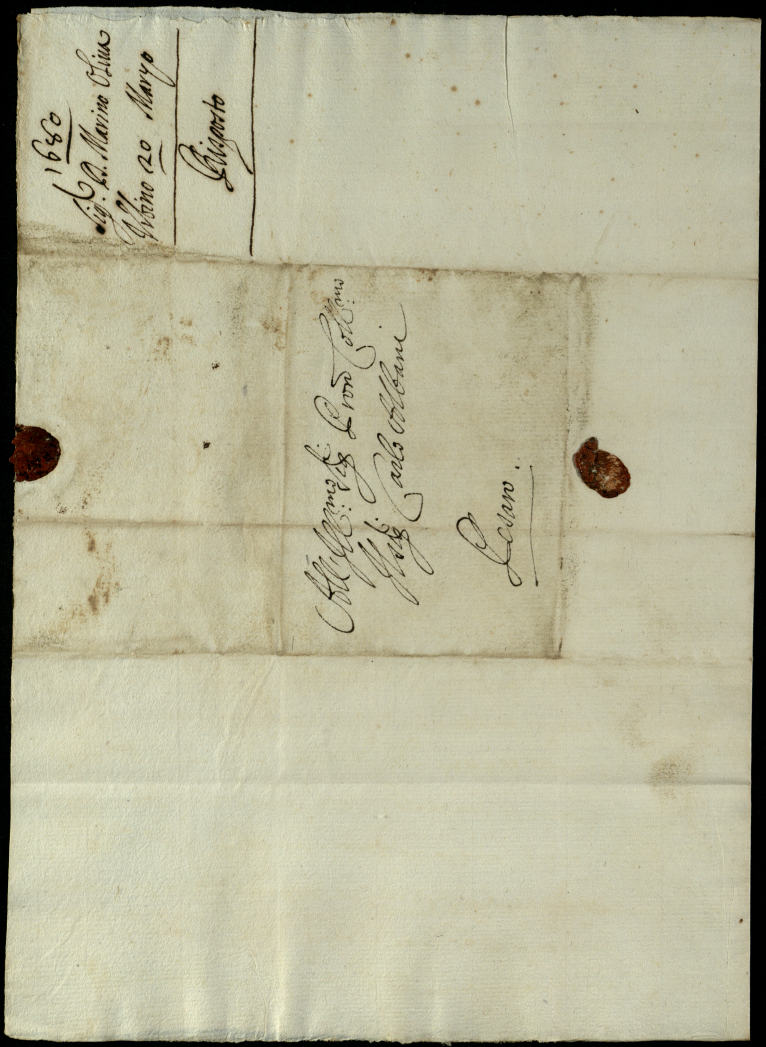 1680
Sig. D. Marino Oliva
Urbino 20 Marzo
Risposto
All' Ill:mo Sig: Pron Coll:mo
Il Sig: Carlo Albani
Pesaro.